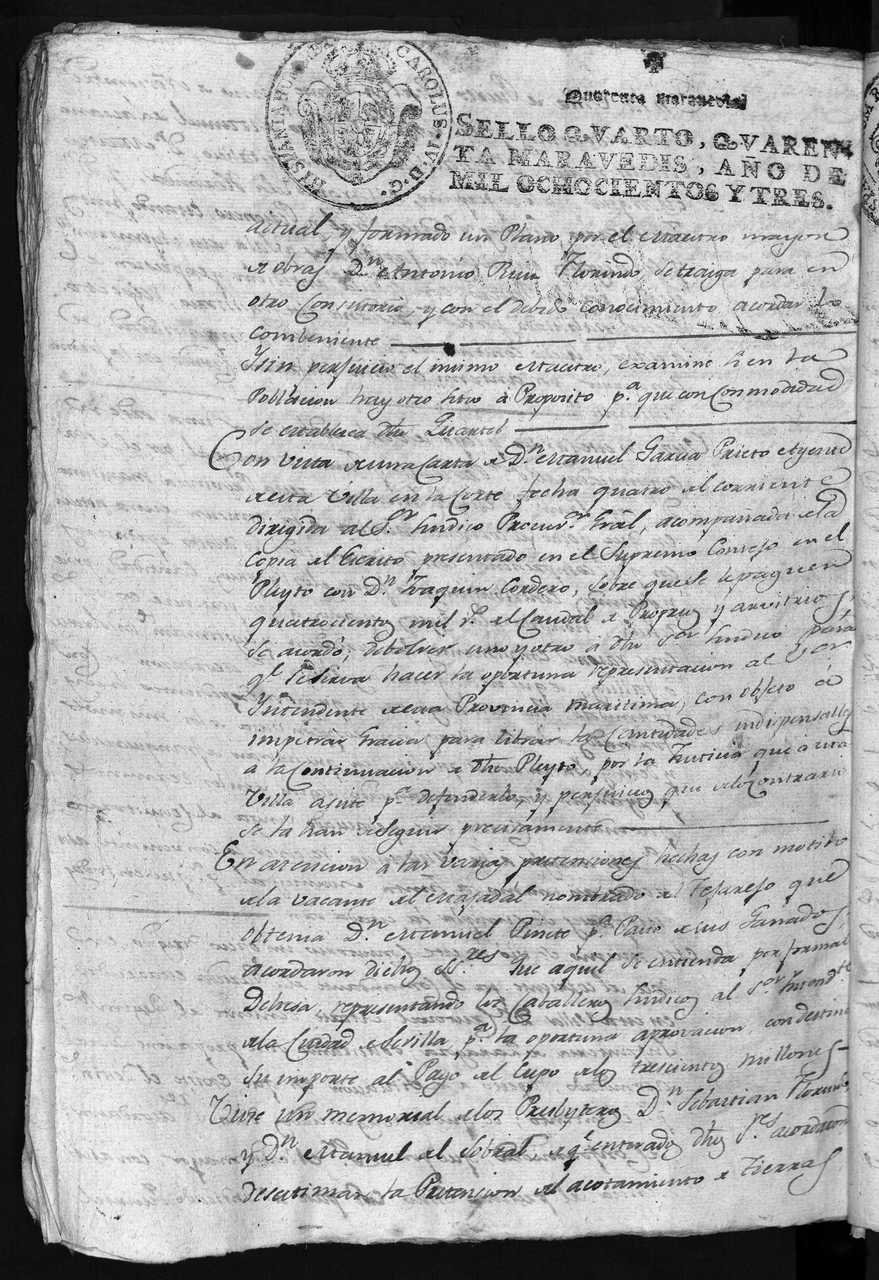 HISPANIARUM REX CAROLUS IV D.G.
Quarenta maravedis
SELLO QVARTO, QVAREN-
TA MARAVEDIS, AÑO DE
MIL OCHOCIENTOS Y TRES.
actual, y formado un Plano por el Maestro mayor
de obras Dn Antonio Ruiz Florindo se traiga para en
otro Concistorio, y con el debido conocimiento acordar lo
combeniente
Y sin perjuicio el mismo Maestro, examine si en la
Poblacion hay otro sitio à Proposito pa que con Commodidad
se establesca dho Quartel
Con vista de una Carta de Dn Manuel Garcia Prieto Agente
de esta Villa en la Corte fecha quatro del corriente
dirigida al Sr Sindico Procurr Gral, acompañada de la
copia del Escrito presentado en el Supremo Consejo en el
Pleyto con Dn Joaquin Cordero, sobre que se le paguen
quatrocientos mil rs del Caudal de Propios y arvitrios
se acordó, debolver uno y otro à dho Sor Sindico para
qe se sirva hacer la oportuna representacion al Sor
Intendente de esta Provincia maritima, con objeto à
impetrar Gracia para librar las Cantidades indispensables
à la Continuacion de dho Pleyto, por la Justicia que à esta
Villa asiste pa defenderlo, y perjuicios que de lo Contrario
se la han de seguir precisamente
En atencion à las varias pretensiones hechas con motibo
de la vacante del Majadal nombrado del Tesorejo que
obtenia Dn Manuel Pinete pa Pasto de sus Ganados,
acordaron dichos SSres Que aquel se entienda por formal
Dehesa, representando los Caballeros Sindicos al Sor Intendte
de la Ciudad de Sevilla, pa la oportuna aprovacion, con destino
su importe al Pago del Cupo de los trescientos millones
Viose un memorial de los Presbyteros Dn Sebastian Florindo
y Dn Manuel del Sobral, de qe enterados dhos Sres acordaron
desestimar la Pretension del acotamiento de tierras